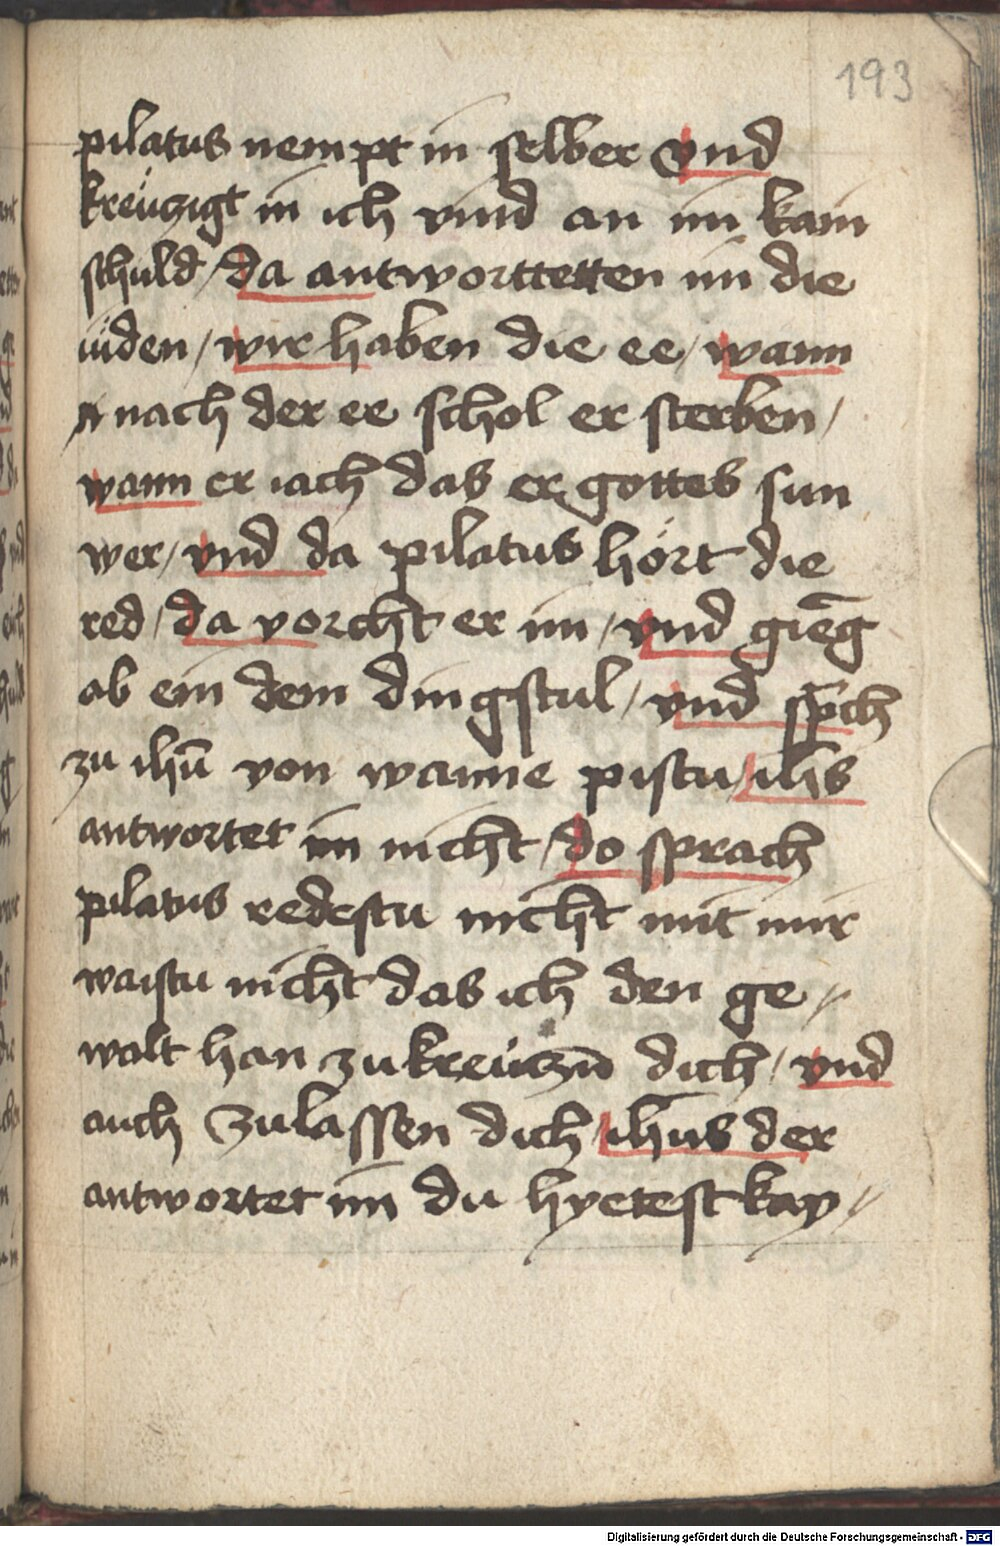 193
pilatus nempt in selber vnd
kreüczigt in ich vind an im kain
schuld / da antworttetten im die
iüden / wir haben die ee / wann
nach der ee schol er sterben /
wann er iach das er gottes sun
wer / vnd da pilatus hört die
red / da vorcht er im / vnd gieng
ab ein dem dingstul / vnd sp̄ch
zu ihū von wanne pistu / ih̄s
antwortet im nicht / do sprach
pilatus redestu nicht mit mir
waistu nicht das ich den ge //
walt han zu kreüczn̄ dich / vnd
auch zulassen dich / ih̄us der
antwortet im du hyetest kay //
Digitalisierung gefördert durch die Deutsche Forschungsgemeinschaft - DFG